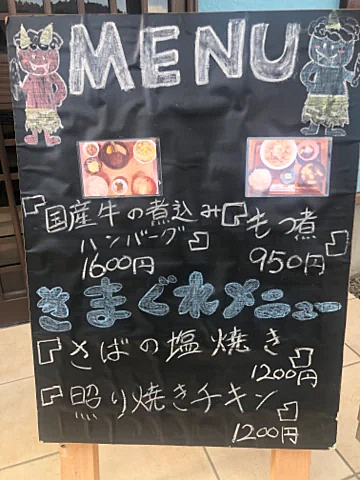 MENU
『国産牛の煮込み
ハンバーグ』
1600円
『もつ煮』
950円
きまぐれメニュー
『さばの塩焼き』
1200円
『照り焼きチキン』
1200円